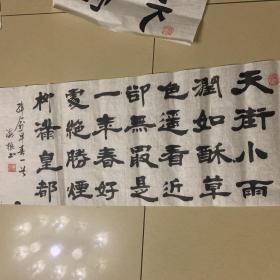 天街小雨
潤如酥草
色遥看近
卻無最是
一年春好
處絕勝煙
柳滿皇都
早春一首